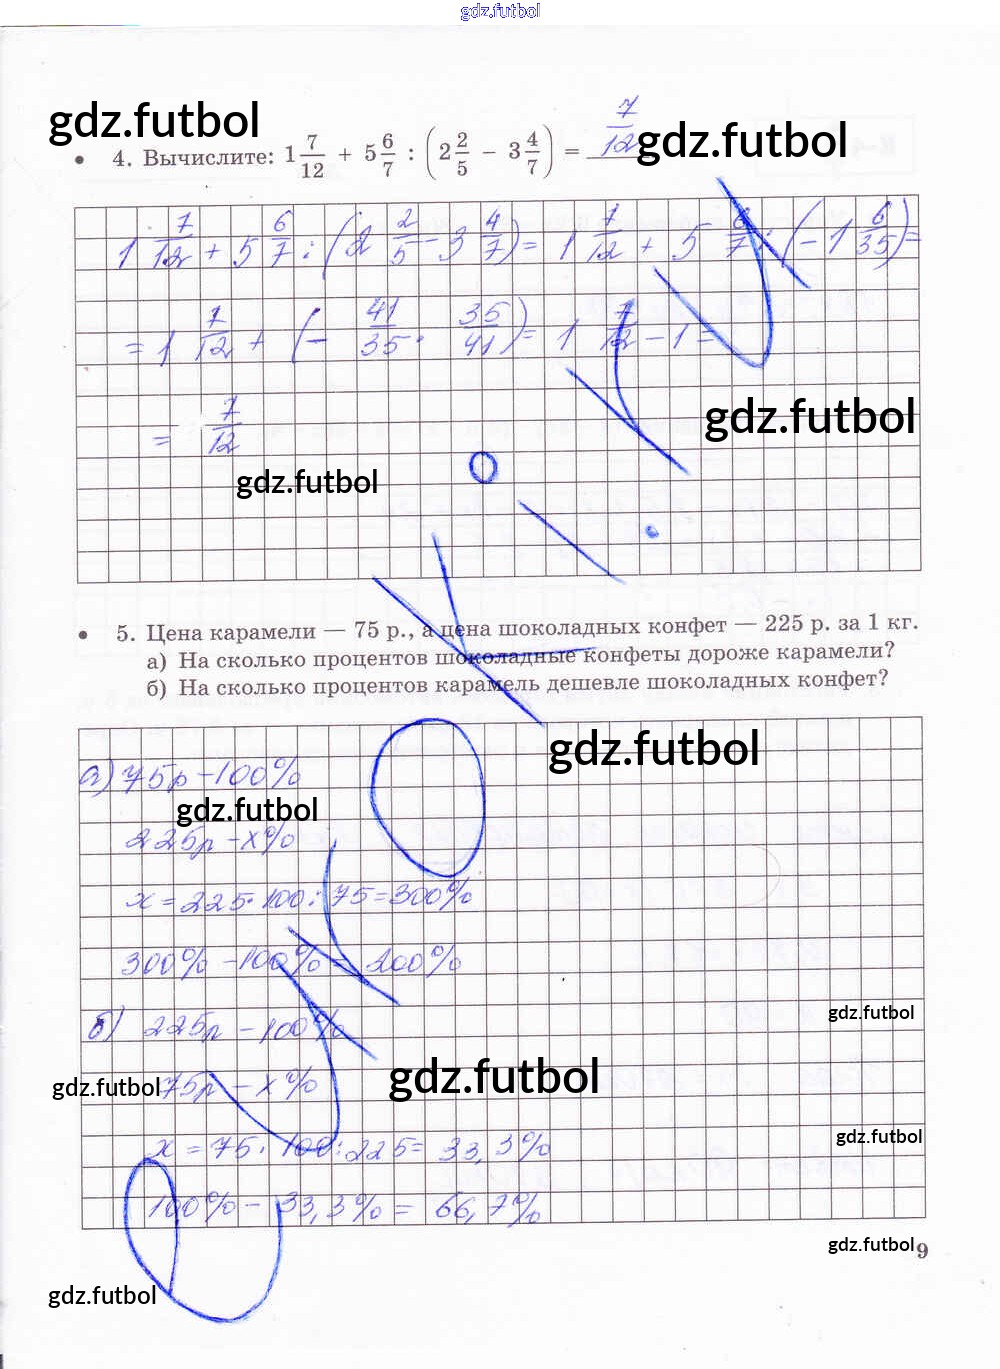 gdz.futbol
gdz.futbol
• 4. Вычислите: 1 7/12 + 5 6/7 : (2 2/5 − 3 4/7) = 7/12
gdz.futbol
1 7/12 + 5 6/7 : (2 2/5 − 3 4/7) = 1 7/12 + 5 6/7 : (−1 6/35) =
= 1 7/12 + (− 41/35 · 35/41) = 1 7/12 − 1 =
gdz.futbol
= 7/12
gdz.futbol
• 5. Цена карамели — 75 р., а цена шоколадных конфет — 225 р. за 1 кг.
а) На сколько процентов шоколадные конфеты дороже карамели?
б) На сколько процентов карамель дешевле шоколадных конфет?
gdz.futbol
а) 75р − 100%
gdz.futbol
225р − х%
х = 225 · 100 : 75 = 300%
300% − 100% = 200%
gdz.futbol
б) 225р − 100%
gdz.futbol
gdz.futbol 75р − х%
gdz.futbol
х = 75 · 100 : 225 = 33,3%
100% − 33,3% = 66,7%
gdz.futbol 9
gdz.futbol